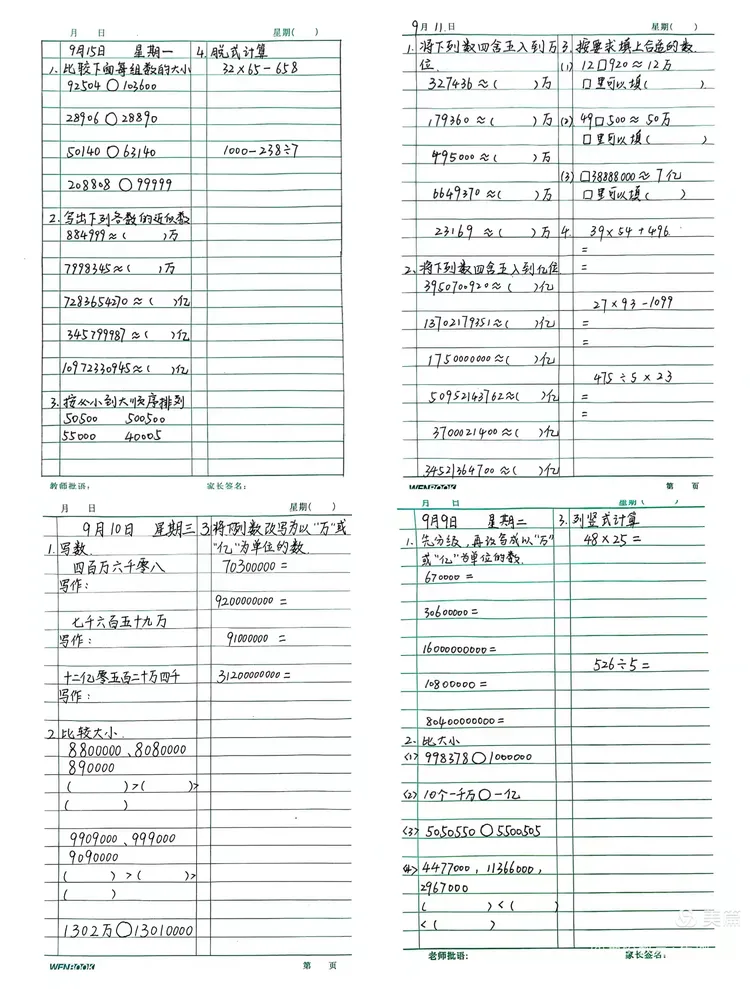 月 日 星期( )
9月15日 星期一
1. 比较下面每组数的大小
92504 ○ 103600
28906 ○ 28890
50140 ○ 63140
208808 ○ 99999
2. 写出下列各数的近似数
884999≈( )万
7998345≈( )万
7283654270≈( )亿
345799987≈( )亿
10972330945≈( )亿
3. 按从小到大顺序排列
50500 500500
55000 40005
4. 脱式计算
32×65-658
1000-238÷7
教师批语: 家长签名:
9月11日 星期( )
1. 将下列数四舍五入到万
位.
327436≈( )万
179360≈( )万
495000≈( )万
6649370≈( )万
23169≈( )万
2. 将下列数四舍五入到亿位
3950700920≈( )亿
13702179351≈( )亿
1750000000≈( )亿
50952143762≈( )亿
3700021400≈( )亿
34521364700≈( )亿
3. 按要求填上合适的数.
(1) 12□920≈12万
□里可以填( )
(2) 49□500≈50万
□里可以填( )
(3) □38888000≈7亿
□里可以填( )
4. 39×54+496
=
=
27×93-1099
=
=
475÷5×23
=
=
WENBOOK 第 页
月 日 星期( )
9月10日 星期三
1. 写数
四百万六千零八
写作:
七千六百五十九万
写作:
十二亿零五百二十万四千
写作:
2. 比较大小.
8800000、8080000
890000
( )>( )>
( )
9909000、999000
9090000
( )>( )>
( )
1302万○13010000
3. 将下列数改写为以"万"或
"亿"为单位的数.
70300000=
9200000000=
91000000=
31200000000=
WENBOOK 第 页
月 日 星期( )
9月9日 星期二
1. 先分级,再改写成以"万"
或"亿"为单位的数.
670000=
30600000=
16000000000=
10800000=
80400000000=
2. 比大小
(1) 998378○1000000
(2) 10个一千万○一亿
(3) 5050550○5500505
(4) 4477000, 11366000,
2967000
( )<( )
<( )
3. 列竖式计算
48×25=
526÷5=
老师批语: 家长签名:
美篇